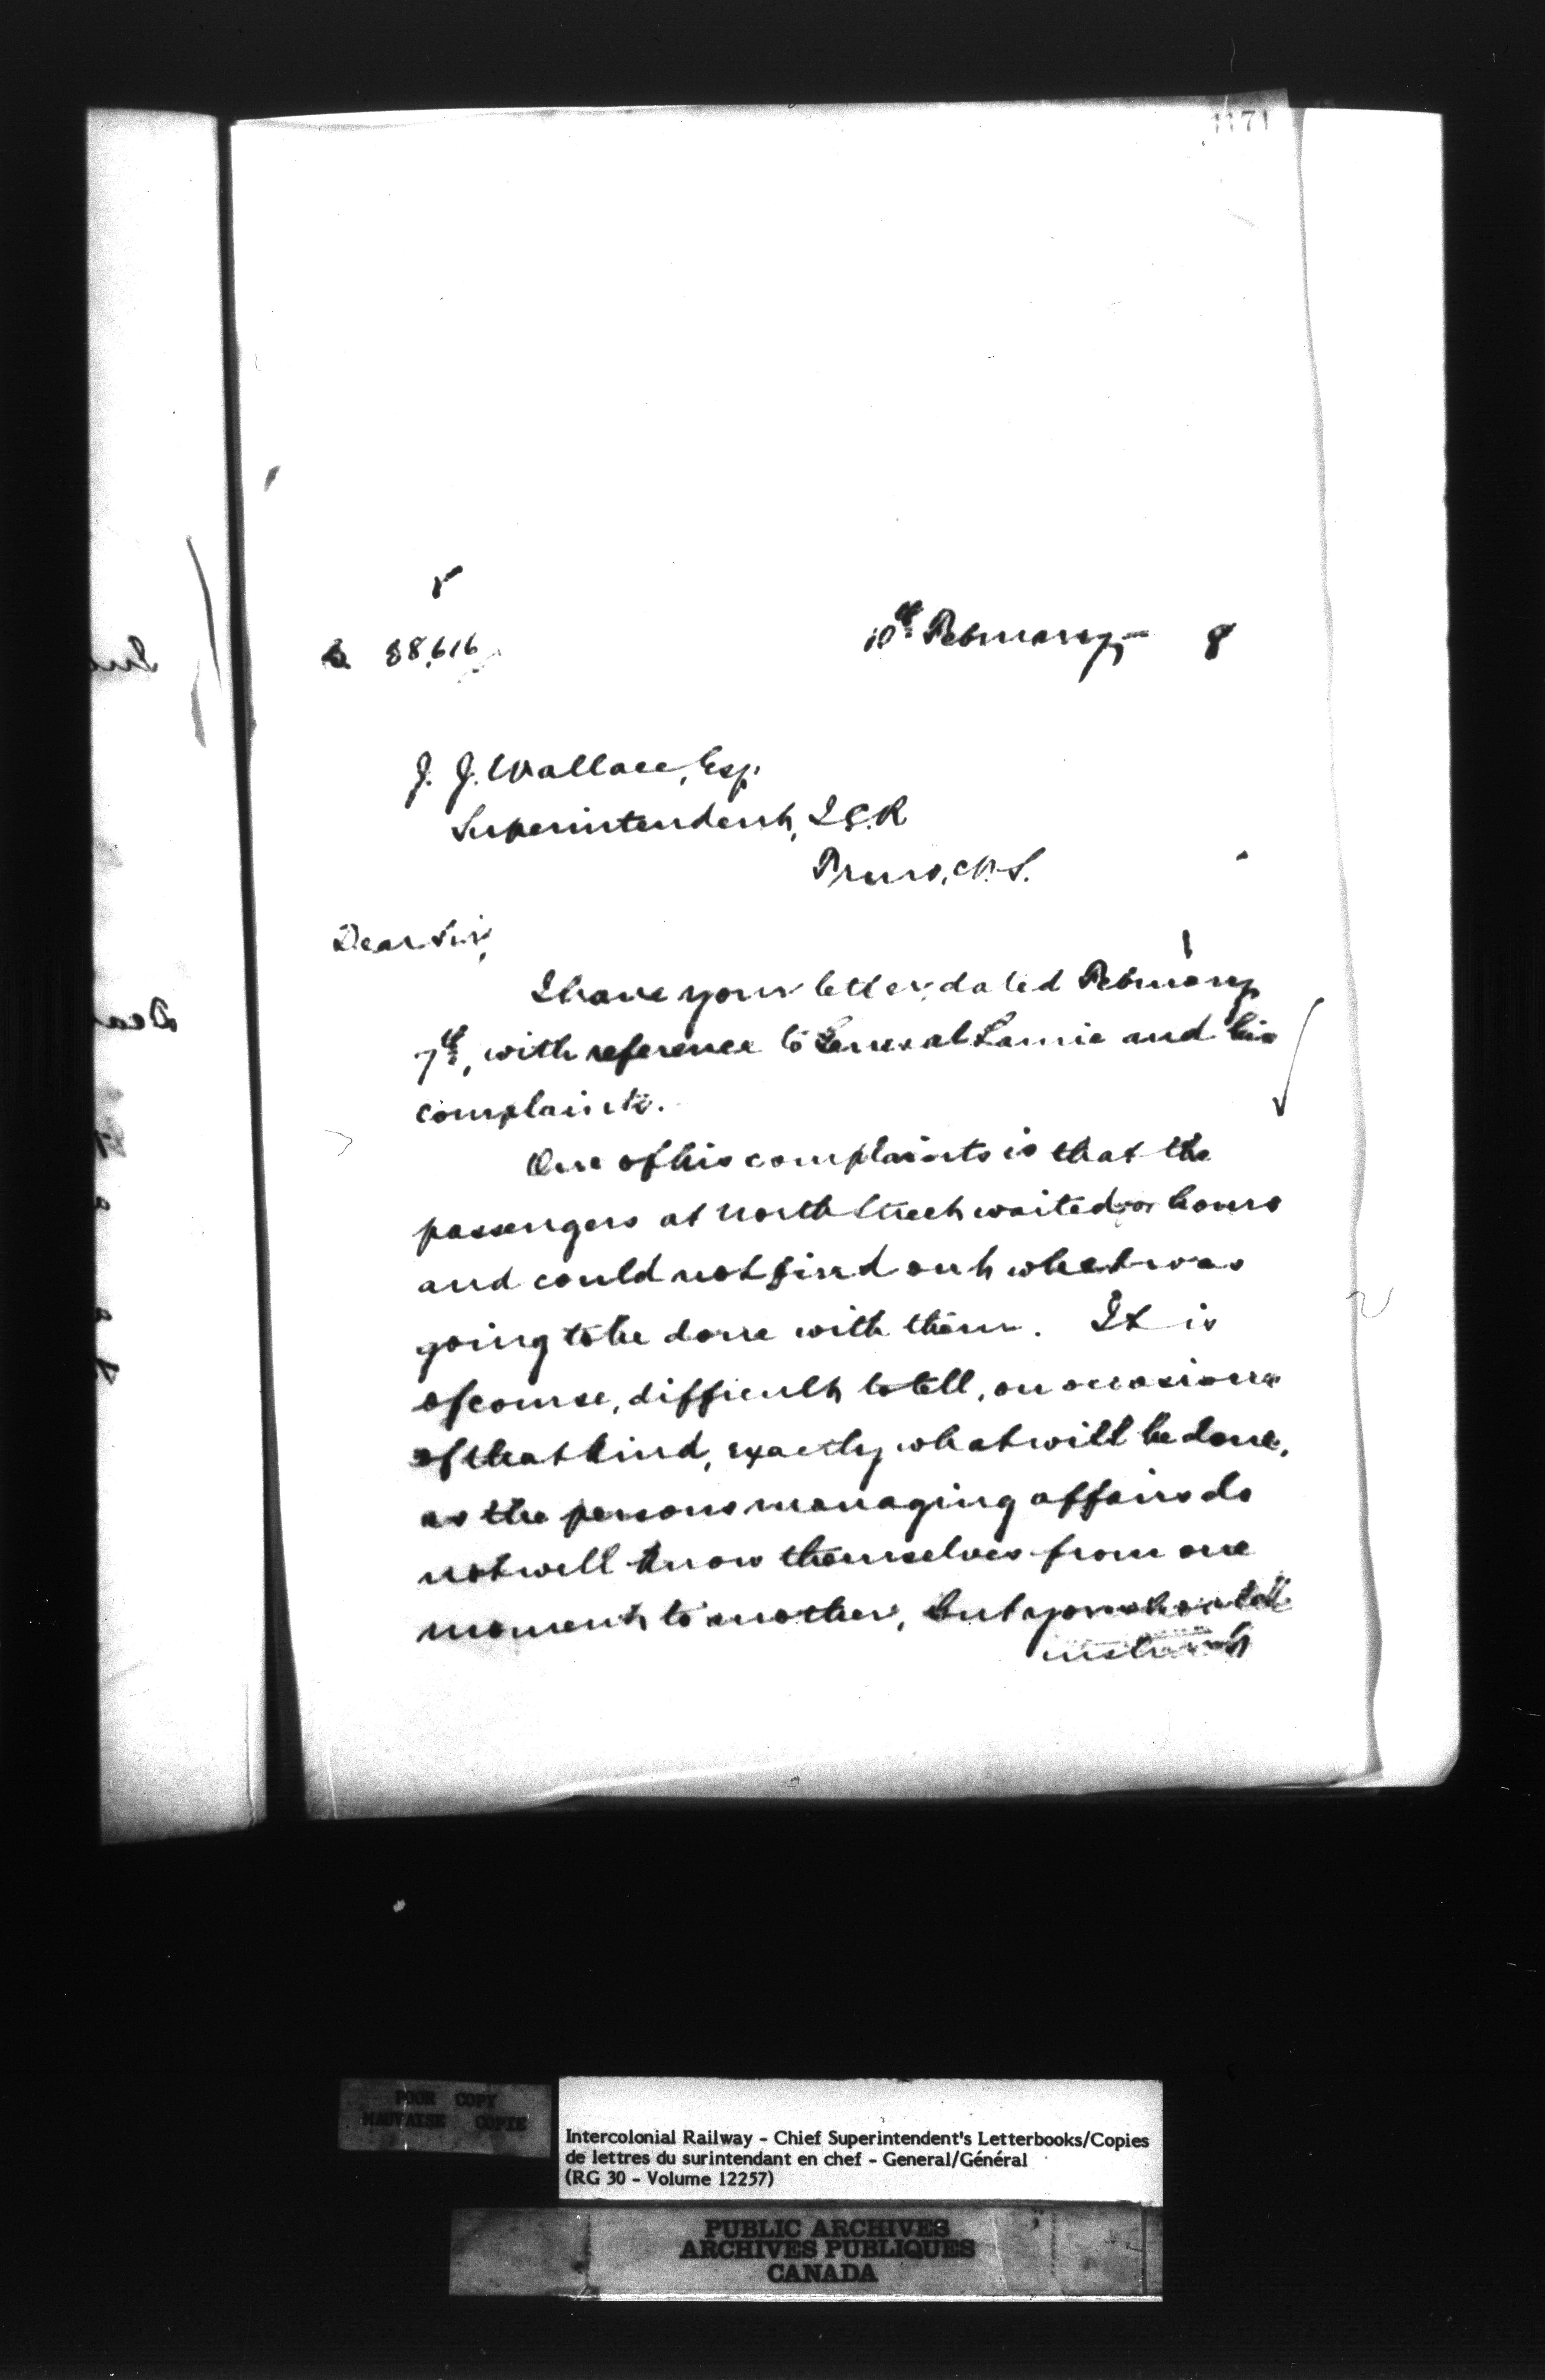 1171
88,616
10th February 8
J. J. Wallace, Esq.
Superintendent, I.C.R
Truro, N.S.
Dear Sir,
I have your letter dated February
7th, with reference to General Laurie and his
complaints.
One of his complaints is that the
passengers at North Street waited for hours
and could not find out what was
going to be done with them. It is
of course, difficult to tell, on occasions
of that kind, exactly what will be done,
as the persons managing affairs do
not well know themselves from one
moment to another, but you should
instruct
Dear
POOR COPY
MAUVAISE COPIE
Intercolonial Railway - Chief Superintendent's Letterbooks/Copies
de lettres du surintendant en chef - General/Général
(RG 30 - Volume 12257)
PUBLIC ARCHIVES
ARCHIVES PUBLIQUES
CANADA